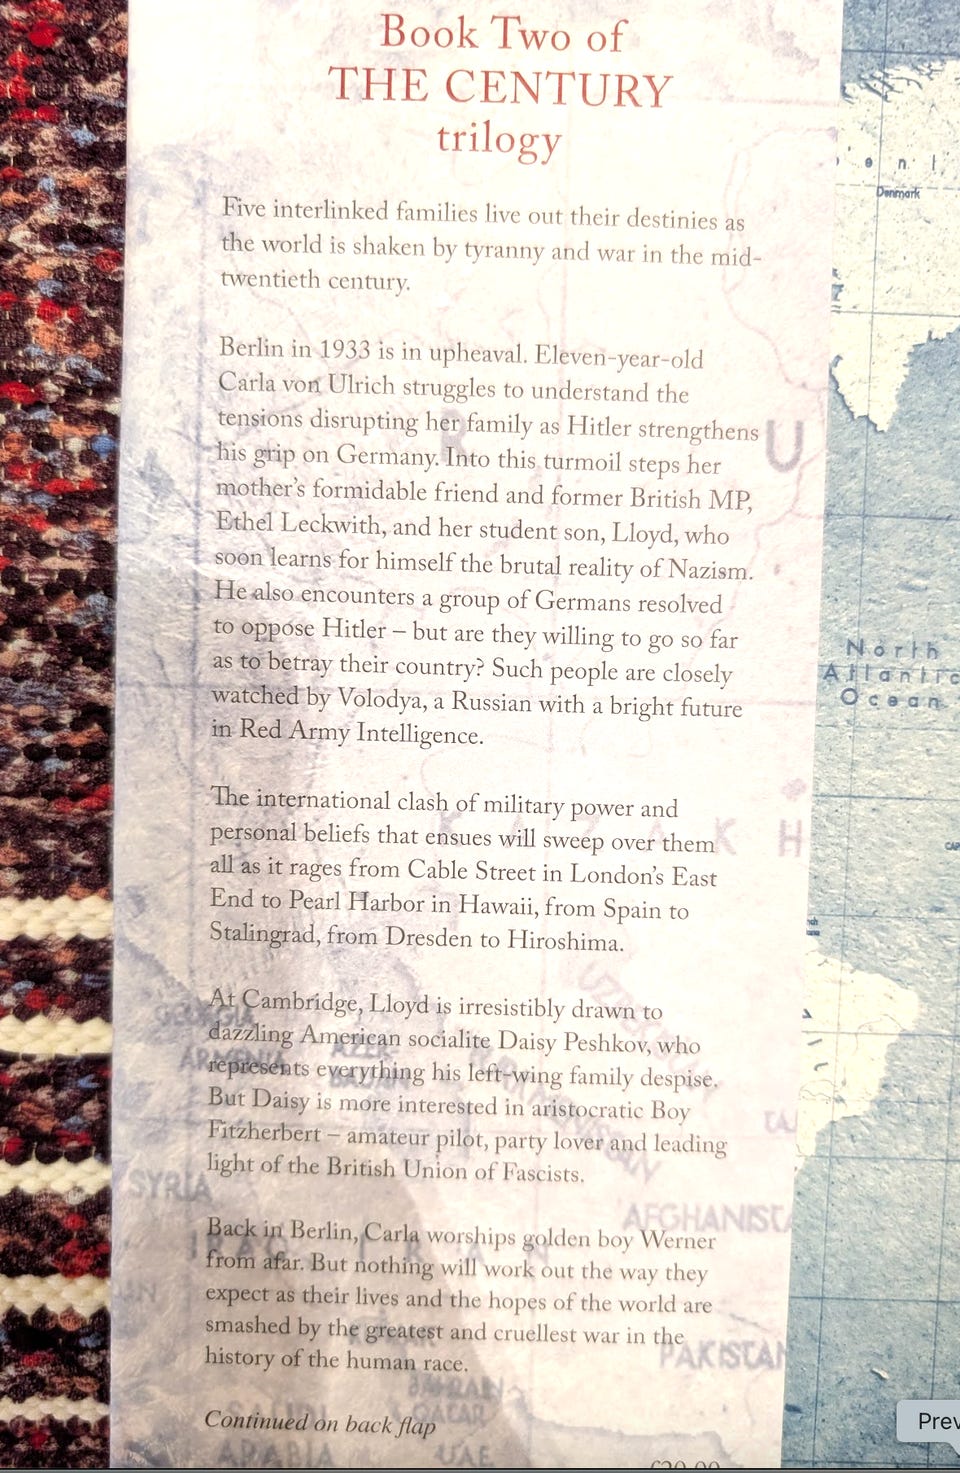 Book Two of
THE CENTURY
trilogy
Five interlinked families live out their destinies as
the world is shaken by tyranny and war in the mid-
twentieth century.
Berlin in 1933 is in upheaval. Eleven-year-old
Carla von Ulrich struggles to understand the
tensions disrupting her family as Hitler strengthens
his grip on Germany. Into this turmoil steps her
mother's formidable friend and former British MP,
Ethel Leckwith, and her student son, Lloyd, who
soon learns for himself the brutal reality of Nazism.
He also encounters a group of Germans resolved
to oppose Hitler – but are they willing to go so far
as to betray their country? Such people are closely
watched by Volodya, a Russian with a bright future
in Red Army Intelligence.
The international clash of military power and
personal beliefs that ensues will sweep over them
all as it rages from Cable Street in London's East
End to Pearl Harbor in Hawaii, from Spain to
Stalingrad, from Dresden to Hiroshima.
At Cambridge, Lloyd is irresistibly drawn to
dazzling American socialite Daisy Peshkov, who
represents everything his left-wing family despise.
But Daisy is more interested in aristocratic Boy
Fitzherbert – amateur pilot, party lover and leading
light of the British Union of Fascists.
Back in Berlin, Carla worships golden boy Werner
from afar. But nothing will work out the way they
expect as their lives and the hopes of the world are
smashed by the greatest and cruellest war in the
history of the human race.
Continued on back flap
£20.00
Denmark
North
Atlantic
Ocean
GEORGIA
ARMENIA
SYRIA
IRAN
AFGHANISTA
PAKISTAN
BAHRAIN
QATAR
ARABIA
UAE
Prev